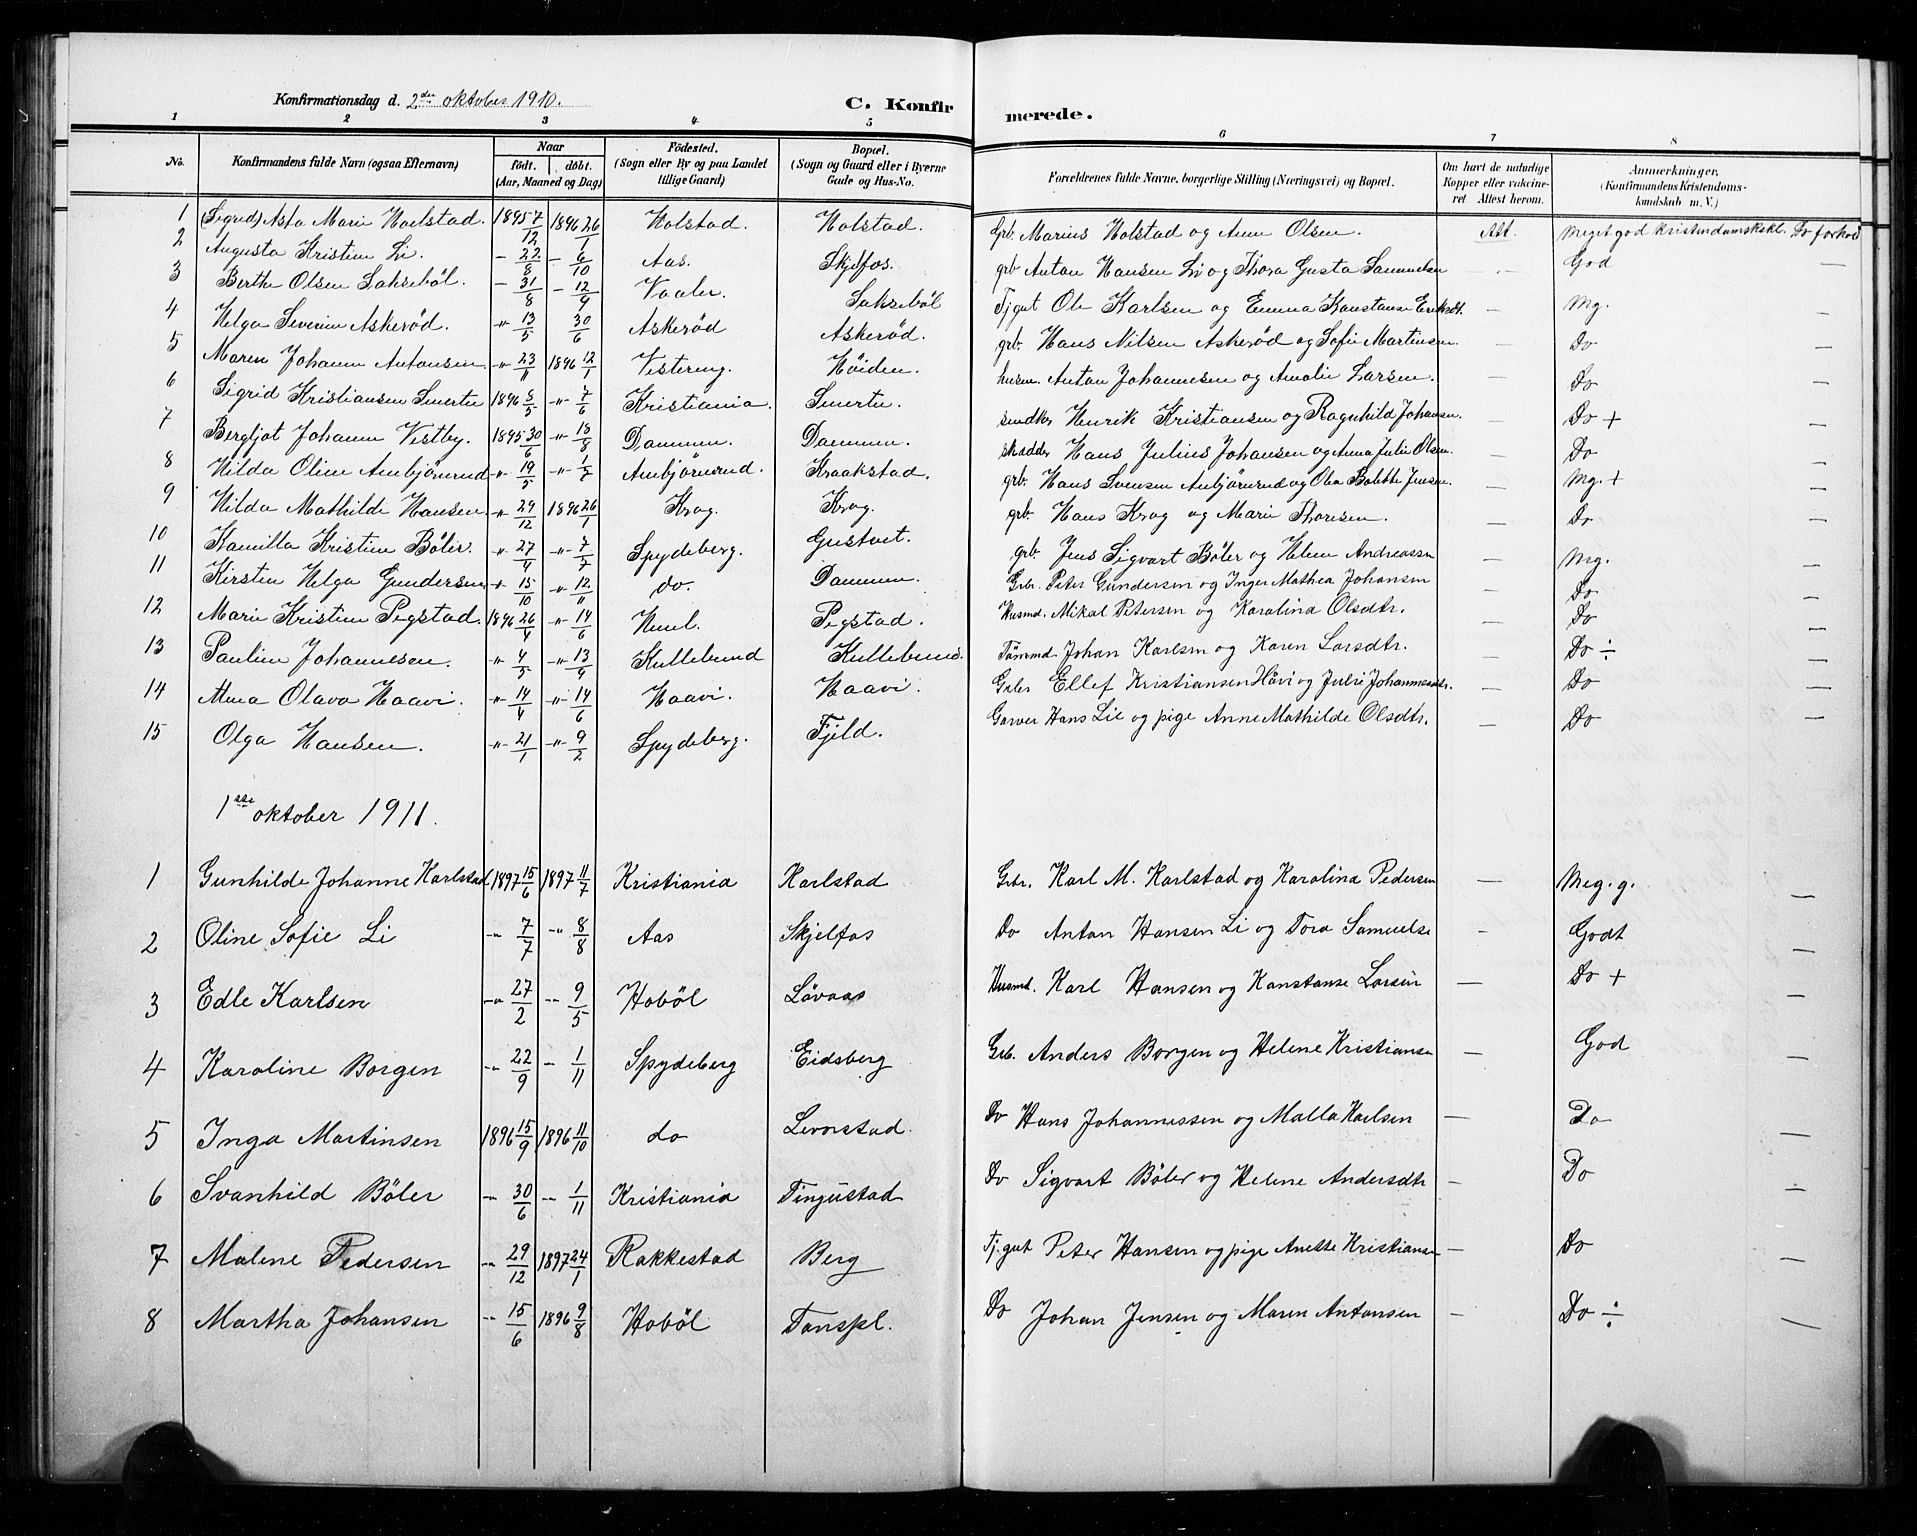 Konfirmationsdag d. 2den oktober 1910. C. Konfirmerede.
1 2 3 4 5 6 7 8
No. Konfirmandens fulde Navn (ogsaa Efternavn) Naar født. døbt. (Aar, Maaned og Dag) Födested. (Sogn eller By og paa Landet tillige Gaard) Bopæl. (Sogn og Gaard eller i Byerne Gade og Hus-No. Forældrenes fulde Navne, borgerlige Stilling (Næringsvei) og Bopæl. Om havt de naturlige Kopper eller vakcineret Attest herom. Anmerkninger, (Konfirmandens Kristendomskundskab m. V.)
1 (Sigrid) Asta Marie Holstad. 1895 7/12 1896 26/1 Holstad. Holstad. Grb. Marius Holstad og Anne Olsen. Att. Meget god kristendomskskl. Do forhod
2 Augusta Kristine Li. - 22/8 - 6/10 Aas. Skjelfos. grb Anton Hansen Li og Thora Gusta Samuelsen - God -
3 Berthe Olsen Saksebøl. - 31/8 - 12/9 Vaaler. Saksebøl Tjgut Ole Karlsen og Emma Konstanse Eriksdt. - Mg. -
4 Helga Severine Askerød. -"- 13/5 30/6 Askerød Askerød. grb. Hans Nilsen Askerød og Sofie Martinsen. - Do -
5 Maren Johanne Antonsen -"- 23/11 1896 12/1 Vestereng. Høiden. husm. Anton Johannesen og Amalie Larsen. - Do -
6 Sigrid Kristiansen Smertu 1896 5/5 -"- 7/6 Kristiania. Smertu. smdker Henrik Kristiansen og Ragnhild Johansen. - Do + -
7 Bergljot Johanne Vestby. 1895 30/6 -"- 18/8 Dammen. Dammen. skrdder Hans Julius Johansen og Anna Julie Olsen. - Do -
8 Hilda Oline Ambjörnrud -"- 19/5 -"- 1/7 Ambjörnrud. Kraakstad. grb. Hans Svensen Anbjörnrud og Olea Bolette Jensen. - Mg. + -
9 Hilda Mathilde Hansen. -"- 29/12 1896 26/1 Krog. Krog. grb. Hans Krog og Marie Thoresen. - Do -
10 Kamilla Kristine Böler. -"- 27/4 -"- 7/7 Spydeberg. Gustvet. grb. Jens Sigvart Böler og Helene Andreassen - Mg. -
11 Kirsten Helga Gundersen -"- 15/10 -"- 12/11 do. Dammen. Grbr. Peter Gundersen og Inger Mathea Johansen - Do -
12 Marie Kristine Pegstad. 1896 26/4 -"- 14/6 Hemb. Pegstad. Husmd. Mikal Petersen og Karolina Olsdtr. - Do -
13 Pauline Johannesen. -"- 4/5 -"- 13/9 Kullebund Kullebund. Tömmd. Johan Karlsen og Karen Larsdtr. - Do ÷ -
14 Alma Olava Haavi. -"- 14/4 -"- 14/6 Haavi. Haavi. Grbr Ellef Kristiansen Hövi og Julie Johannesdtr. - Do -
15 Olga Hansen. -"- 21/1 -"- 9/2 Spydeberg. Fjeld. Garver Hans Lie og pige Anne Mathilde Olsdtr. - Do -
1ste oktober 1911.
1 Gunhilde Johanne Karlstad 1897 15/6 1897 11/7 Kristiania Karlstad Grbr. Karl M. Karlstad og Karolina Pedersen - Meg. g. -
2 Oline Sofie Li -"- 7/7 -"- 8/8 Aas Skjelfos Do Anton Hansen Li og Tora Samuelse - Godt -
3 Edle Karlsen -"- 27/2 -"- 9/5 Hobøl Lövaas Husmd. Karl Hansen og Konstanse Larsen - Do + -
4 Karoline Borgen -"- 22/9 - 1/11 Spydeberg Eidsberg Grb. Anders Borgen og Helene Kristianse - God -
5 Inga Martinsen 1896 15/9 1896 11/10 do Levorstad. Do Hans Johannessen og Malla Karlsen - Do -
6 Svanhild Böler -"- 30/6 -"- 1/11 Kristiania Tingustad Do Sigvart Böler og Helene Andersdtr - Do -
7 Malene Pedersen -"- 29/12 1897 24/1 Rakkestad Berg Tj.gut Peter Hansen og pige Anette Kristianse - Do -
8 Martha Johansen -"- 15/6 1896 9/8 Hobøl Tanspl. Do Johan Jensen og Maren Antonsen - Do ÷ -